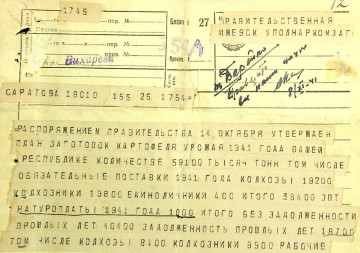 1745
пер. №
Бланк
27
ПРАВИТЕЛЬСТВЕННАЯ
ИЖЕВСК УПОЛНАРКОМЗАГ
Вихареву
8/XI-41
САРАТОВА 19010 155 25 1754=
РАСПОРЯЖЕНИЕМ ПРАВИТЕЛЬСТВА 14 ОКТЯБРЯ УТВЕРЖДЕН
ПЛАН ЗАГОТОВОК КАРТОФЕЛЯ УРОЖАЯ 1941 ГОДА ВАШЕЙ
РЕСПУБЛИКЕ КОЛИЧЕСТВЕ 59100 ТЫСЯЧ ТОНН ТОМ ЧИСЛЕ
ОБЯЗАТЕЛЬНЫЕ ПОСТАВКИ 1941 ГОДА КОЛХОЗЫ 19200
КОЛХОЗНИКИ 19800 ЕДИНОЛИЧНИКИ 400 ИТОГО 39400
НАТУРОПЛАТЫ 1941 ГОДА 1000 ИТОГО БЕЗ ЗАДОЛЖЕННОСТИ
ПРОШЛЫХ ЛЕТ 40400 ЗАДОЛЖЕННОСТЬ ПРОШЛЫХ ЛЕТ 18700
ТОМ ЧИСЛЕ КОЛХОЗЫ 8400 КОЛХОЗНИКИ 9900 РАБОЧИЕ